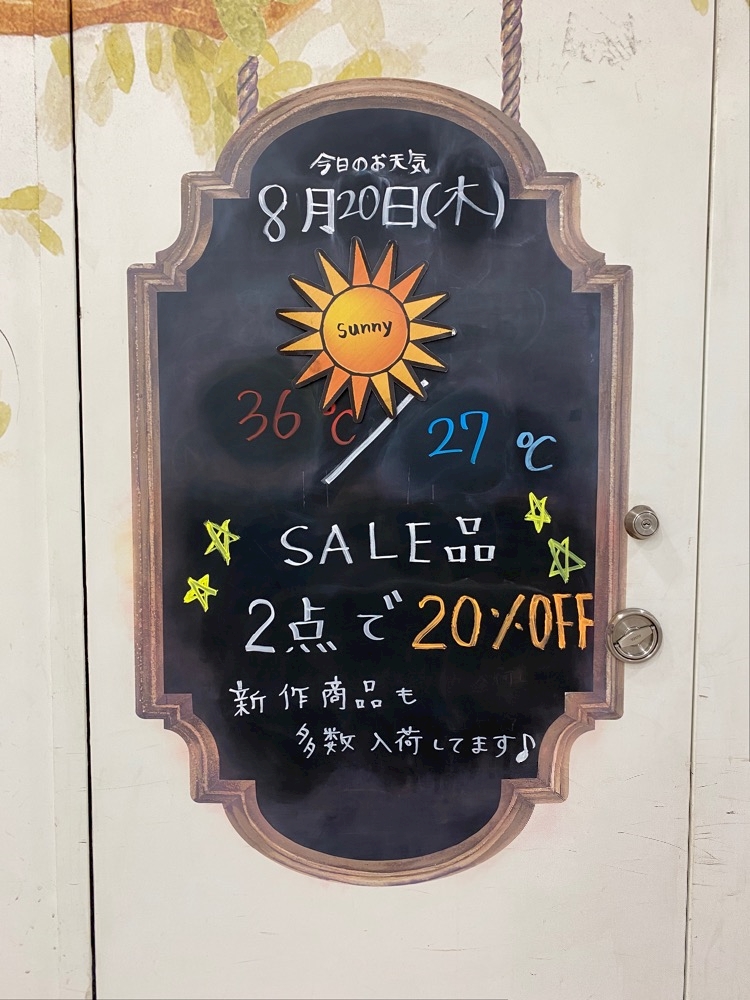 今日のお天気
8月20日(木)
sunny
36℃ / 27℃
SALE品
2点で20%OFF
新作商品も
多数入荷してます♪